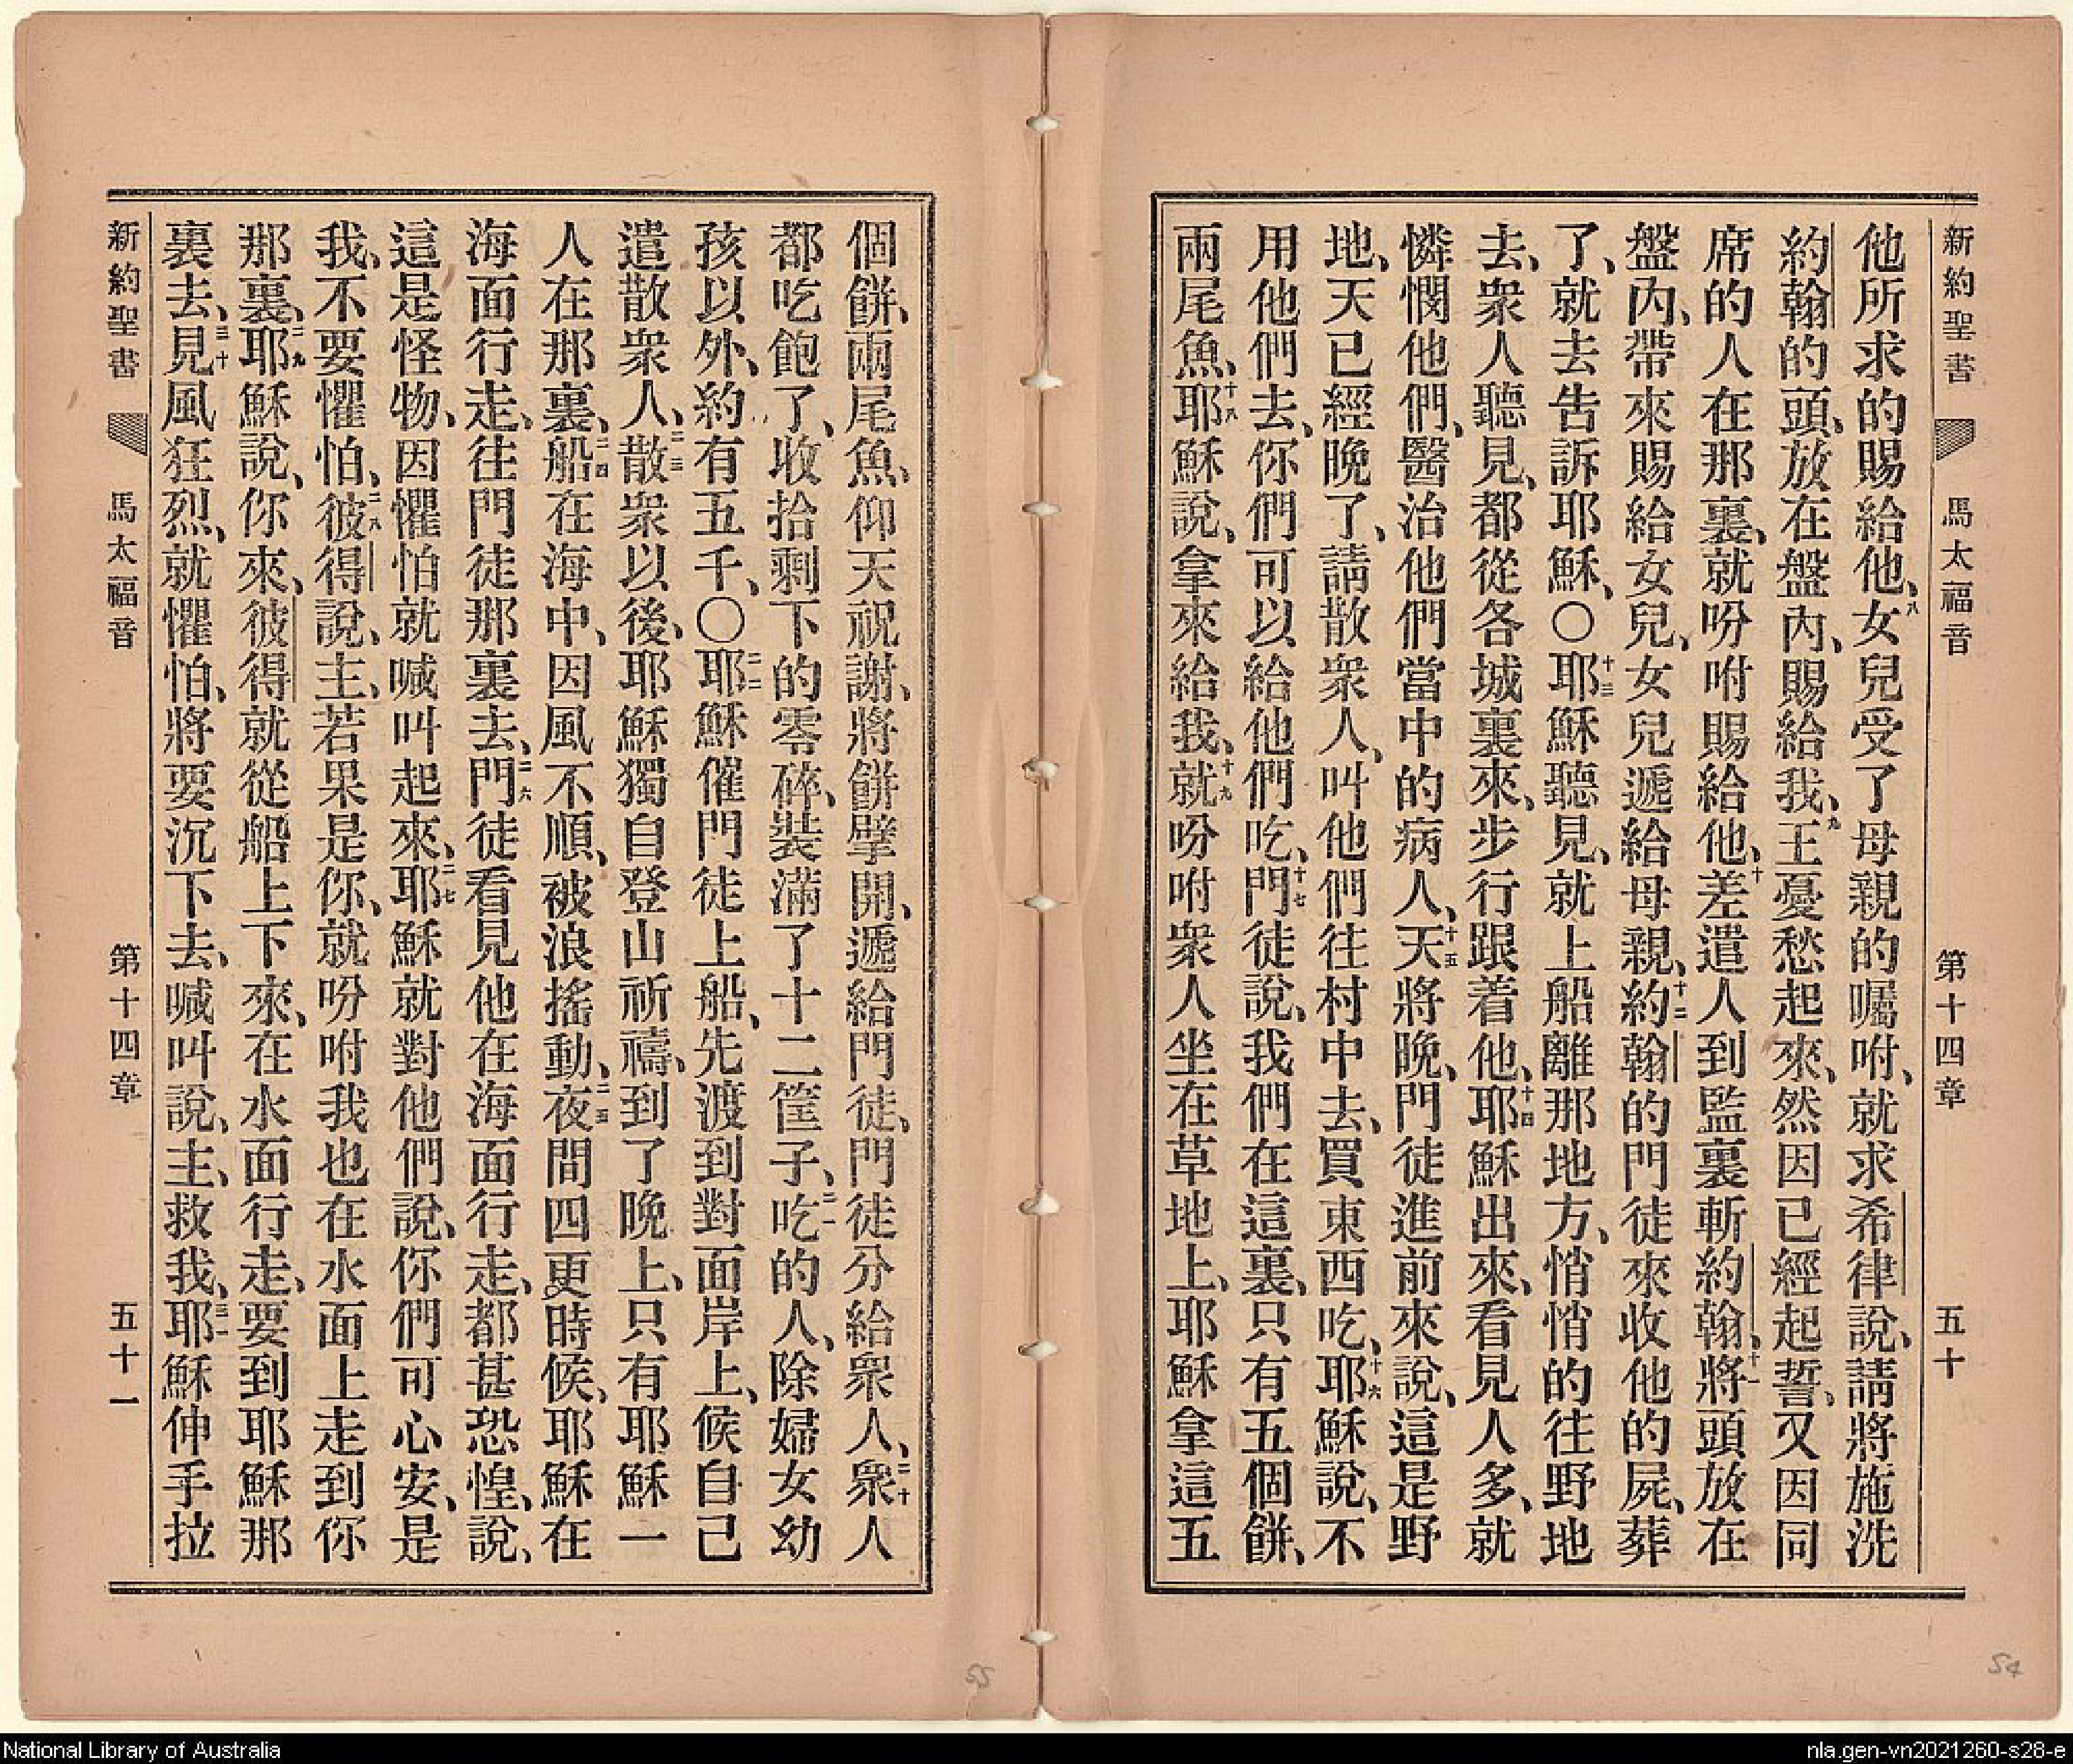 新約聖書 馬太福音 第十四章 五十
他所求的賜給他、八女兒受了母親的囑咐、就求希律說、請將施洗
約翰的頭、放在盤內、賜給我、九王憂愁起來、然因已經起誓、又因同
席的人在那裏、就吩咐賜給他、十差遣人到監裏斬約翰、十一將頭放在
盤內、帶來賜給女兒、女兒遞給母親、十二約翰的門徒來收他的屍、葬
了、就去告訴耶穌、〇十三耶穌聽見、就上船離那地方、悄悄的往野地
去、衆人聽見、都從各城裏來、步行跟着他、十四耶穌出來、看見人多、就
憐憫他們、醫治他們當中的病人、十五天將晚、門徒進前來說、這是野
地、天已經晚了、請散衆人、叫他們往村中去、買東西吃、十六耶穌說、不
用他們去、你們可以給他們吃、十七門徒說、我們在這裏、只有五個餅、
兩尾魚、十八耶穌說、拿來給我、十九就吩咐衆人坐在草地上、耶穌拿這五
個餅、兩尾魚、仰天祝謝、將餅擘開、遞給門徒、門徒分給衆人、二十衆人
都吃飽了、收拾剩下的零碎、裝滿了十二筐子、二一吃的人、除婦女幼
孩以外、約有五千、〇二二耶穌催門徒上船、先渡到對面岸上、候自己
遣散衆人、二三散衆以後、耶穌獨自登山祈禱、到了晚上、只有耶穌一
人在那裏、二四船在海中、因風不順、被浪搖動、二五夜間四更時候、耶穌在
海面行走、往門徒那裏去、二六門徒看見他在海面行走、都甚恐惶、說、
這是怪物、因懼怕就喊叫起來、二七耶穌就對他們說、你們可心安、是
我、不要懼怕、二八彼得說、主、若果是你、就吩咐我也在水面上走到你
那裏、二九耶穌說、你來、彼得就從船上下來、在水面行走、要到耶穌那
裏去、三十見風狂烈、就懼怕、將要沉下去、喊叫說、主、救我、三一耶穌伸手拉
新約聖書 馬太福音 第十四章 五十一
55
54
National Library of Australia
nla.gen-vn2021260-s28-e